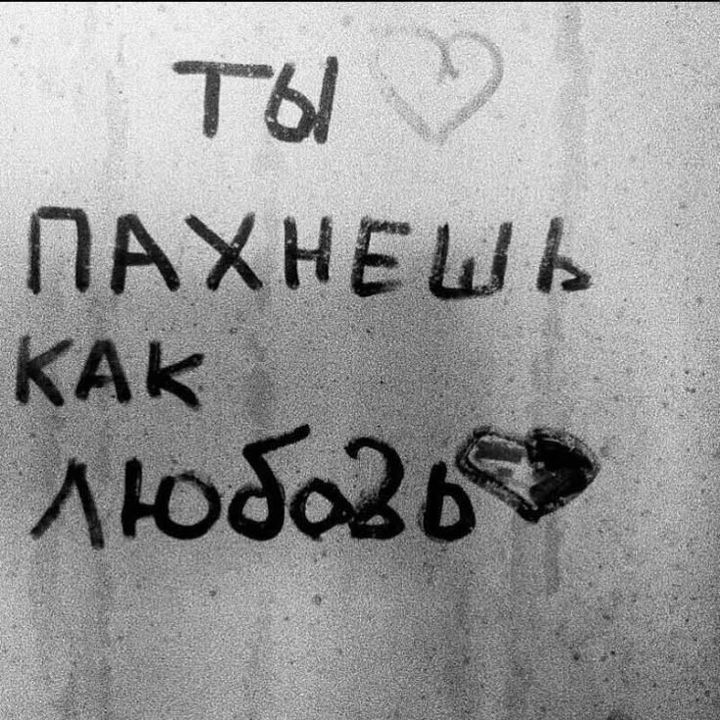 ТЫ
ПАХНЕШЬ
КАК
ЛЮбовь